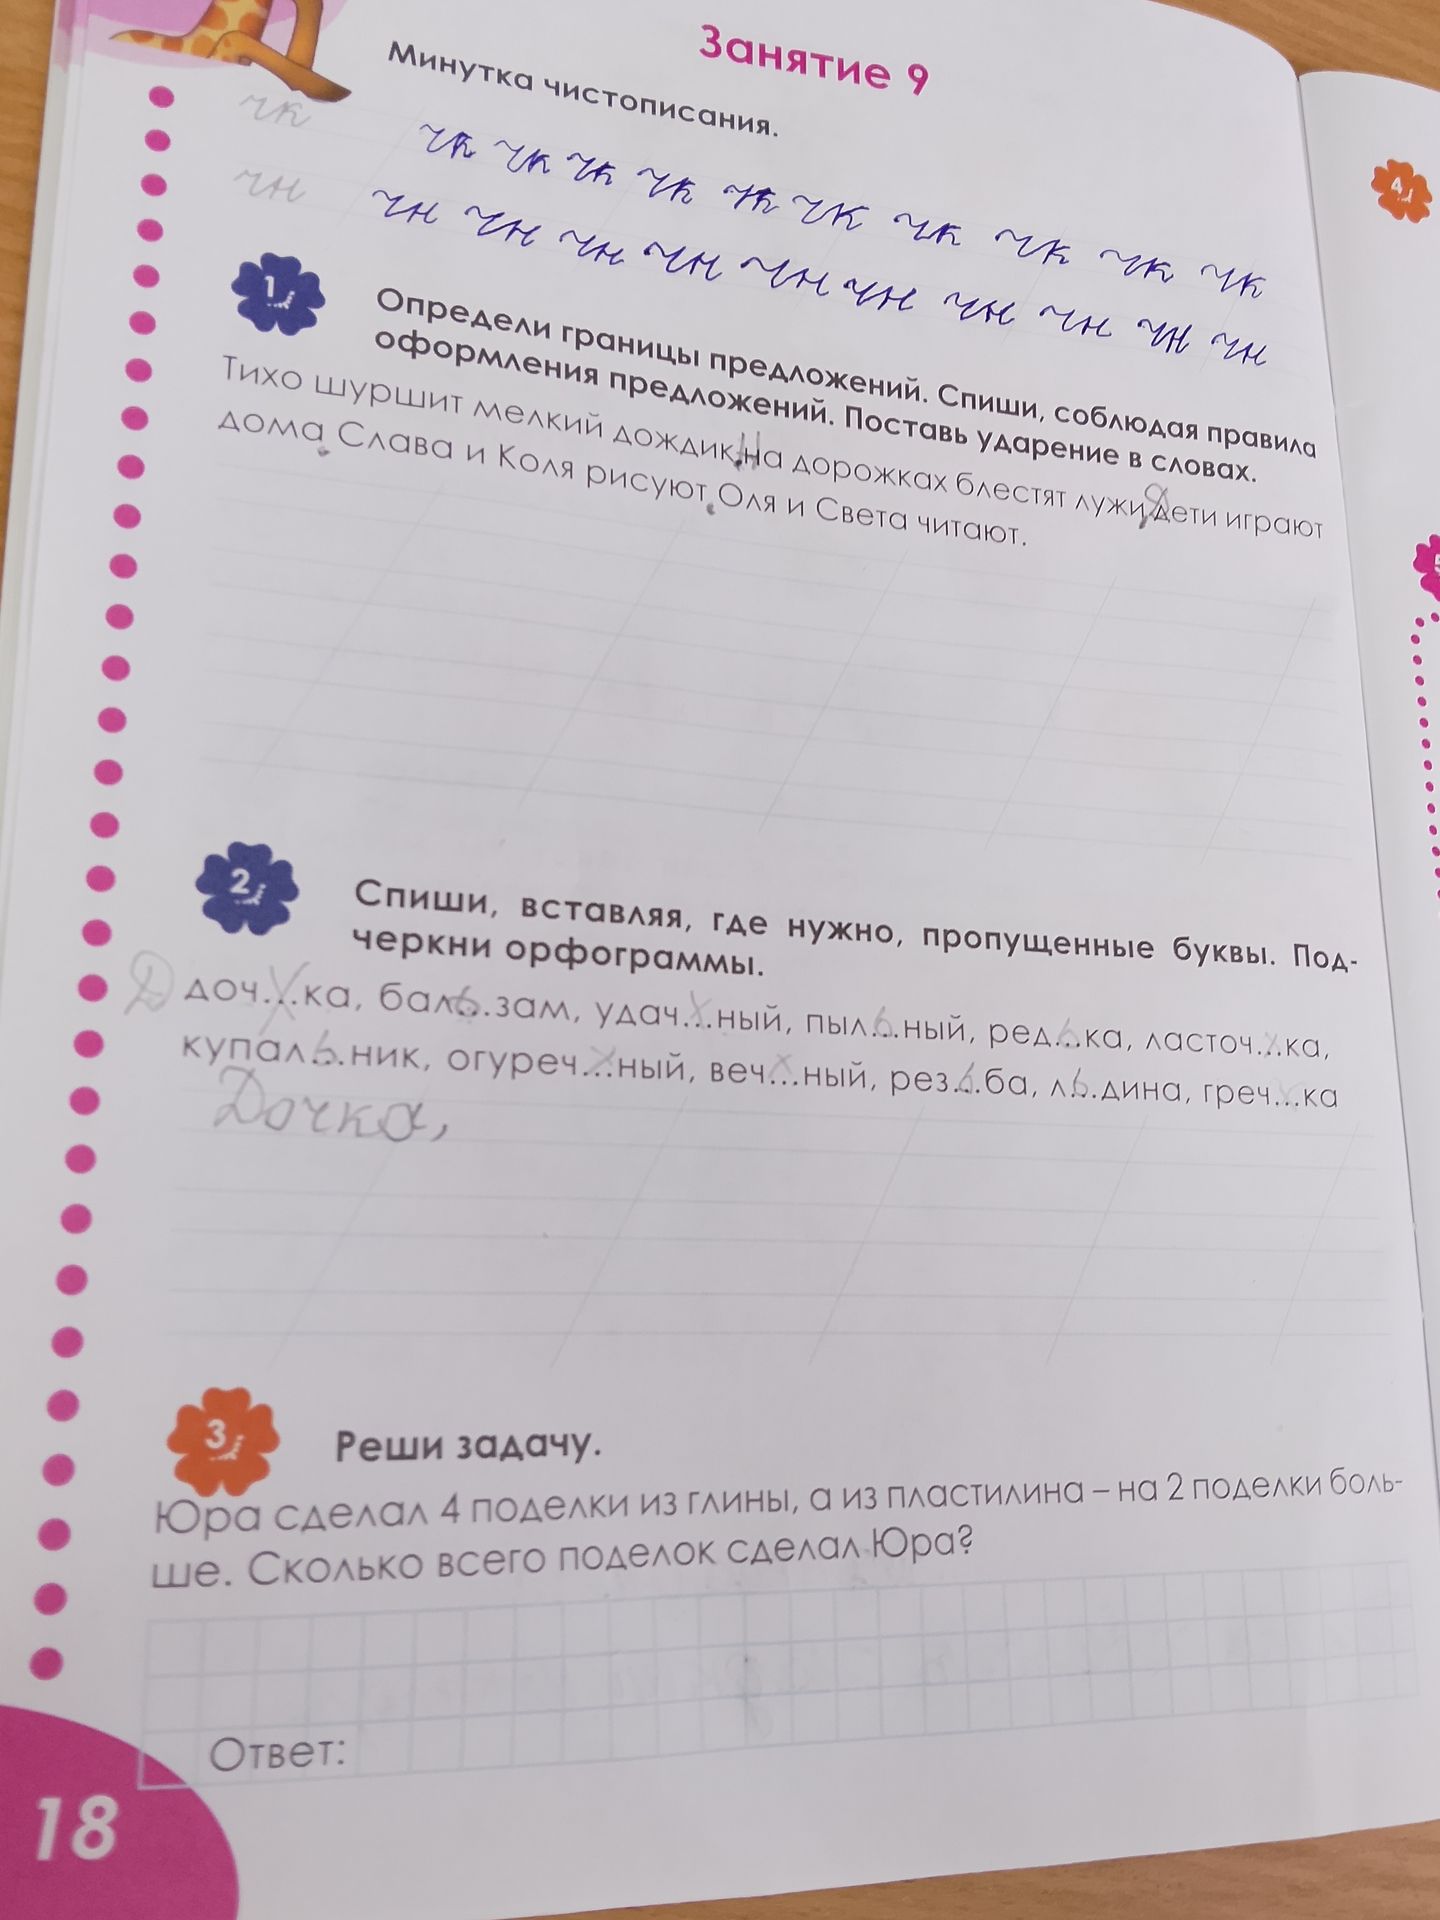 Занятие 9
Минутка чистописания.
чк чк чк чк чк чк чк чк чк чк чк
чн чн чн чн чн чн чн чн чн чн чн
1
Определи границы предложений. Спиши, соблюдая правила
оформления предложений. Поставь ударение в словах.
Тихо шуршит мелкий дождик.На дорожках блестят лужи.Дети играют
дома.Слава и Коля рисуют.Оля и Света читают.
2
Спиши, вставляя, где нужно, пропущенные буквы. Под-
черкни орфограммы.
Д доч...ка, баль...зам, удач...ный, пыль...ный, редь...ка, ласточ...ка,
купаль...ник, огуреч...ный, веч...ный, резь...ба, ль...дина, греч...ка
Дочка,
3
Реши задачу.
Юра сделал 4 поделки из глины, а из пластилина – на 2 поделки боль-
ше. Сколько всего поделок сделал Юра?
Ответ:
18
4
5